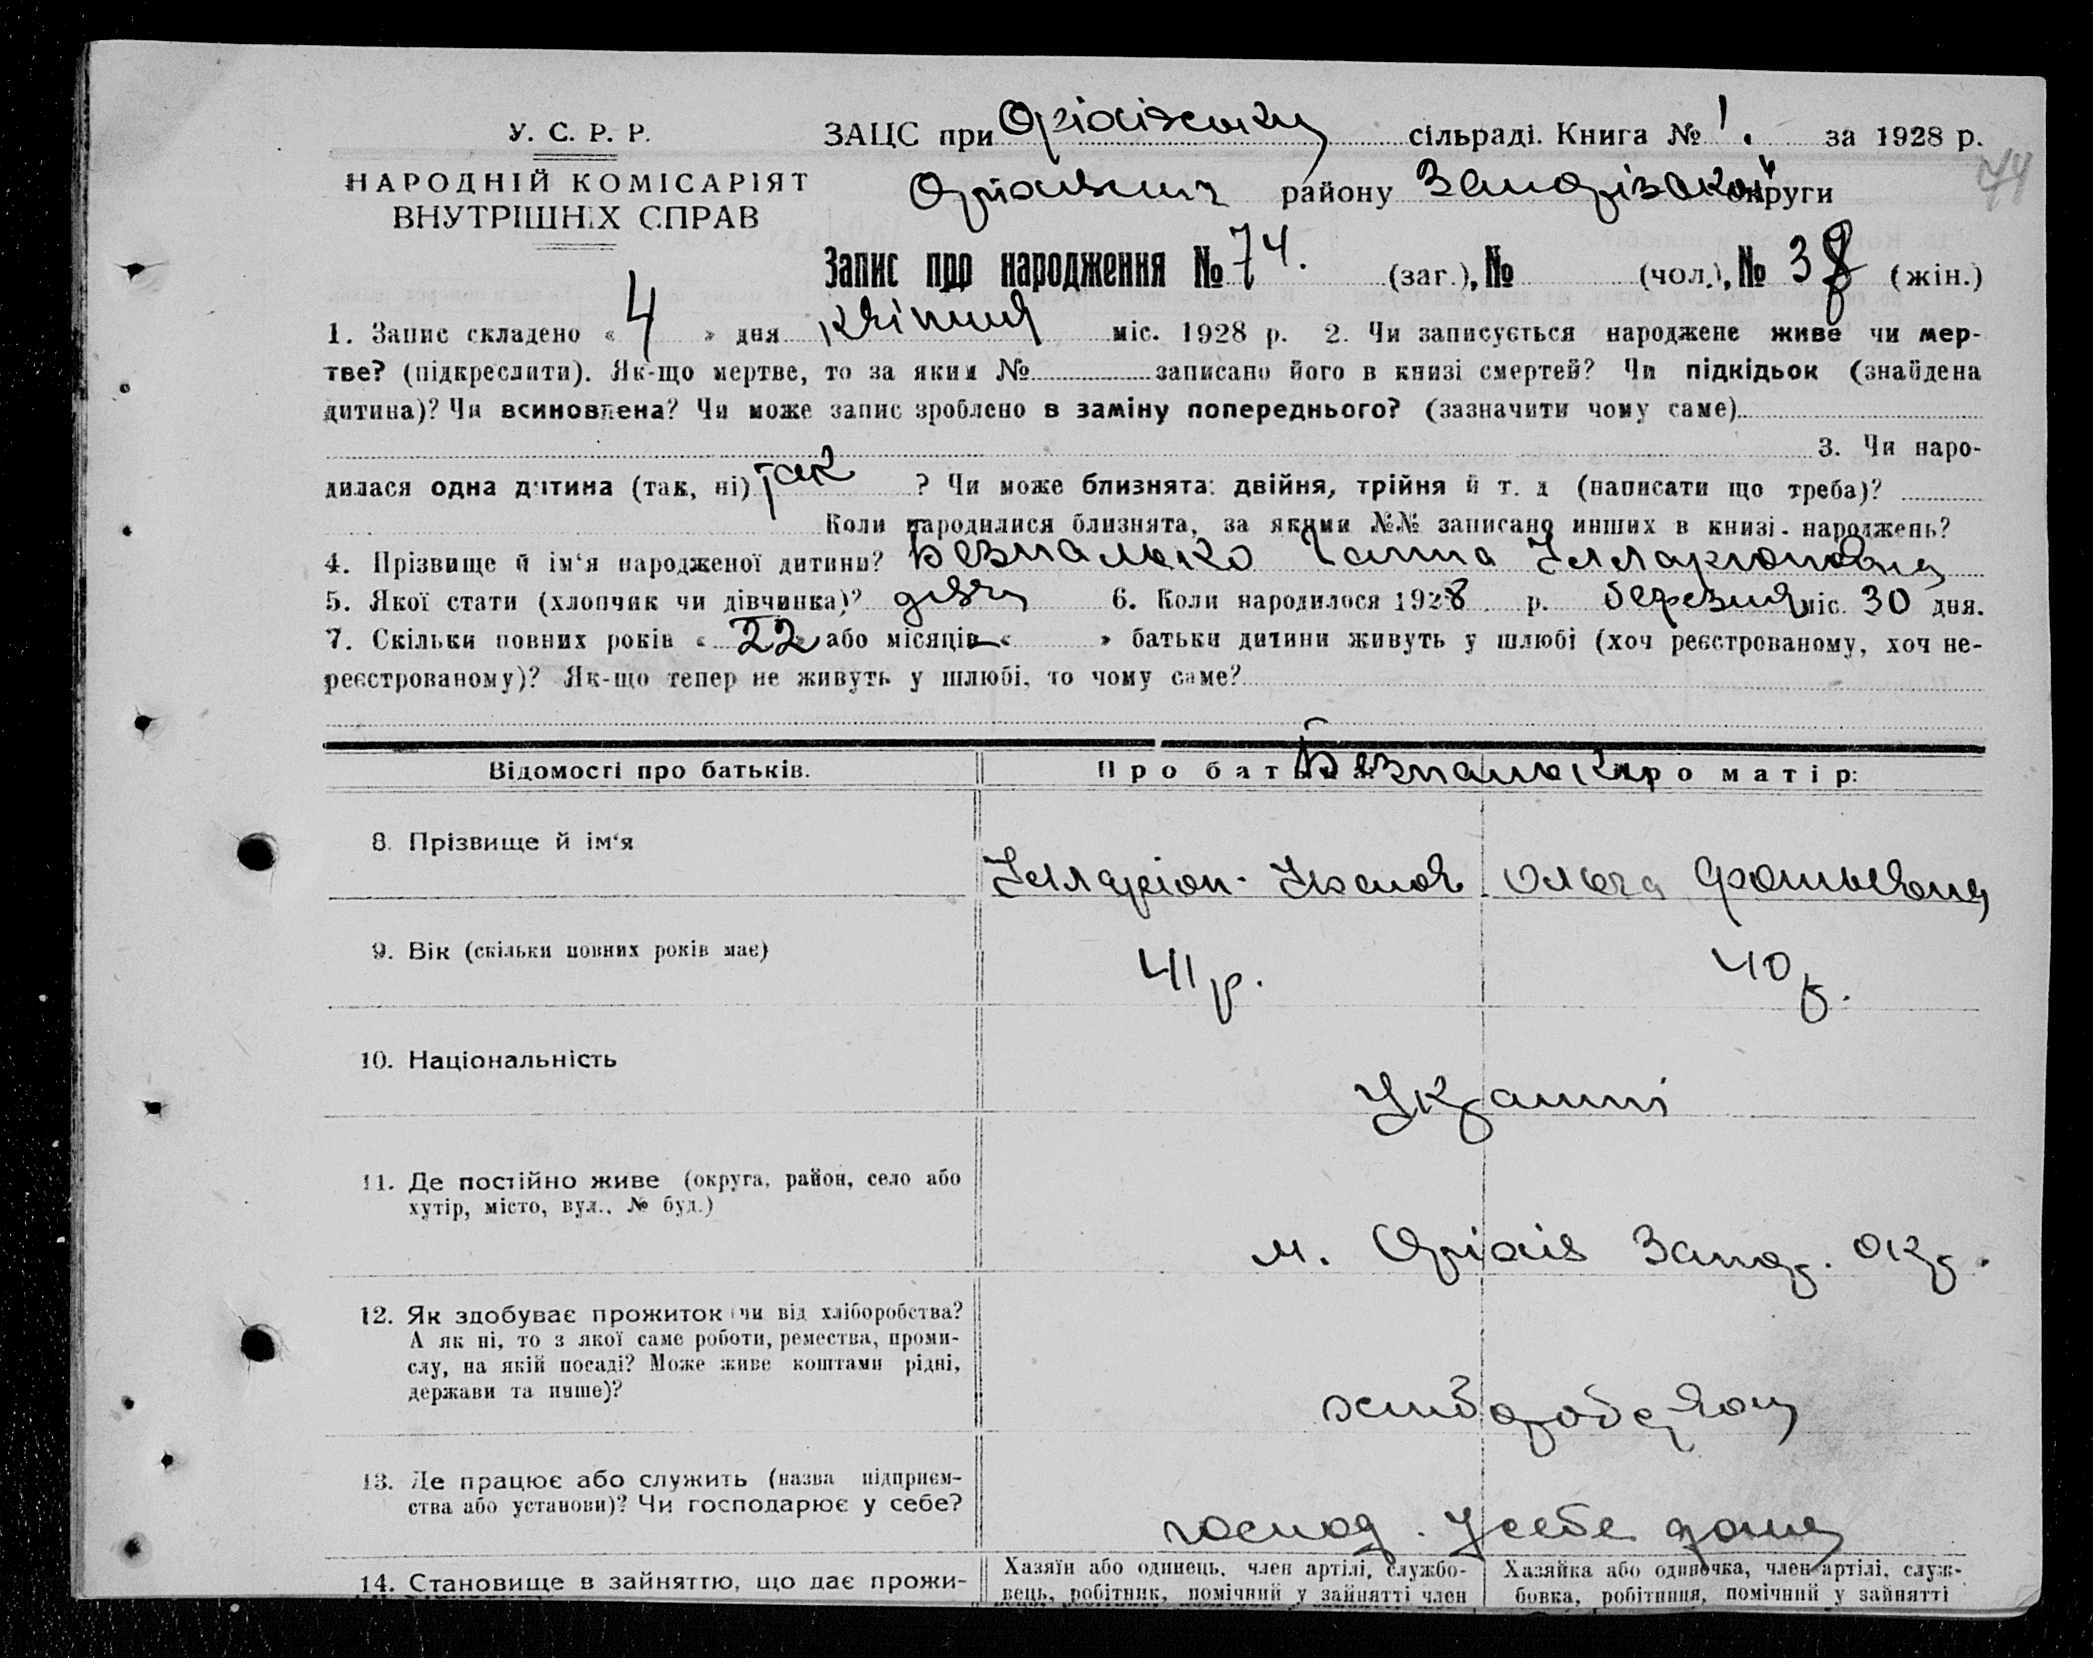 У. С. Р. Р.
НАРОДНІЙ КОМІСАРІЯТ
ВНУТРІШНІХ СПРАВ
ЗАЦС при Оріхівському сільраді. Книга № 1. за 1928 р.
74
Оріхівського району Запорізької округи
Запис про народження № 74. (заг.), № (чол.), № 38 (жін.)
1. Запис складено « 4 » дня квітня міс. 1928 р. 2. Чи записується народжене живе чи мер-
тве? (підкреслити). Як-що мертве, то за яким № записано його в книзі смертей? Чи підкідьок (знайдена
дитина)? Чи всиновлена? Чи може запис зроблено в заміну попереднього? (зазначити чому саме)
3. Чи наро-
дилася одна дитина (так, ні) так ? Чи може близнята: двійня, трійня й т. д (написати що треба)?
Коли народилися близнята, за якими №№ записано инших в книзі народжень?
4. Прізвище й ім‘я народженої дитини? Безпалько Ганна Ілларіоновна
5. Якої стати (хлопчик чи дівчинка)? дівч 6. Коли народилося 1928 р. березня міс. 30 дня.
7. Скільки повних років « 22 » або місяців « » батьки дитини живуть у шлюбі (хоч реєстрованому, хоч не-
реєстрованому)? Як-що тепер не живуть у шлюбі, то чому саме?
Відомості про батьків.
Про батька Безпалько Про матір:
8. Прізвище й ім‘я
Ілларіон Іванов Ольга Фотьевна
9. Вік (скільки повних років має)
41 р. 40 р.
10. Національність
Украинці
11. Де постійно живе (округа, район, село або
хутір, місто, вул., № буд.)
м. Оріхів Запор. окр.
12. Як здобуває прожиток (чи від хліборобства?
А як ні, то з якої саме роботи, ремества, проми-
слу, на якій посаді? Може живе коштами рідні,
держави та инше)?
хлиборобством
13. Де працює або служить (назва підприєм-
ства або установи)? Чи господарює у себе?
господ. У себе дома
14. Становище в зайняттю, що дає прожи-
Хазяїн або одинець, член артілі, службо-
вець, робітник, помічний у зайнятті член
Хазяйка або одиночка, член артілі, служ-
бовка, робітниця, помічний у зайнятті